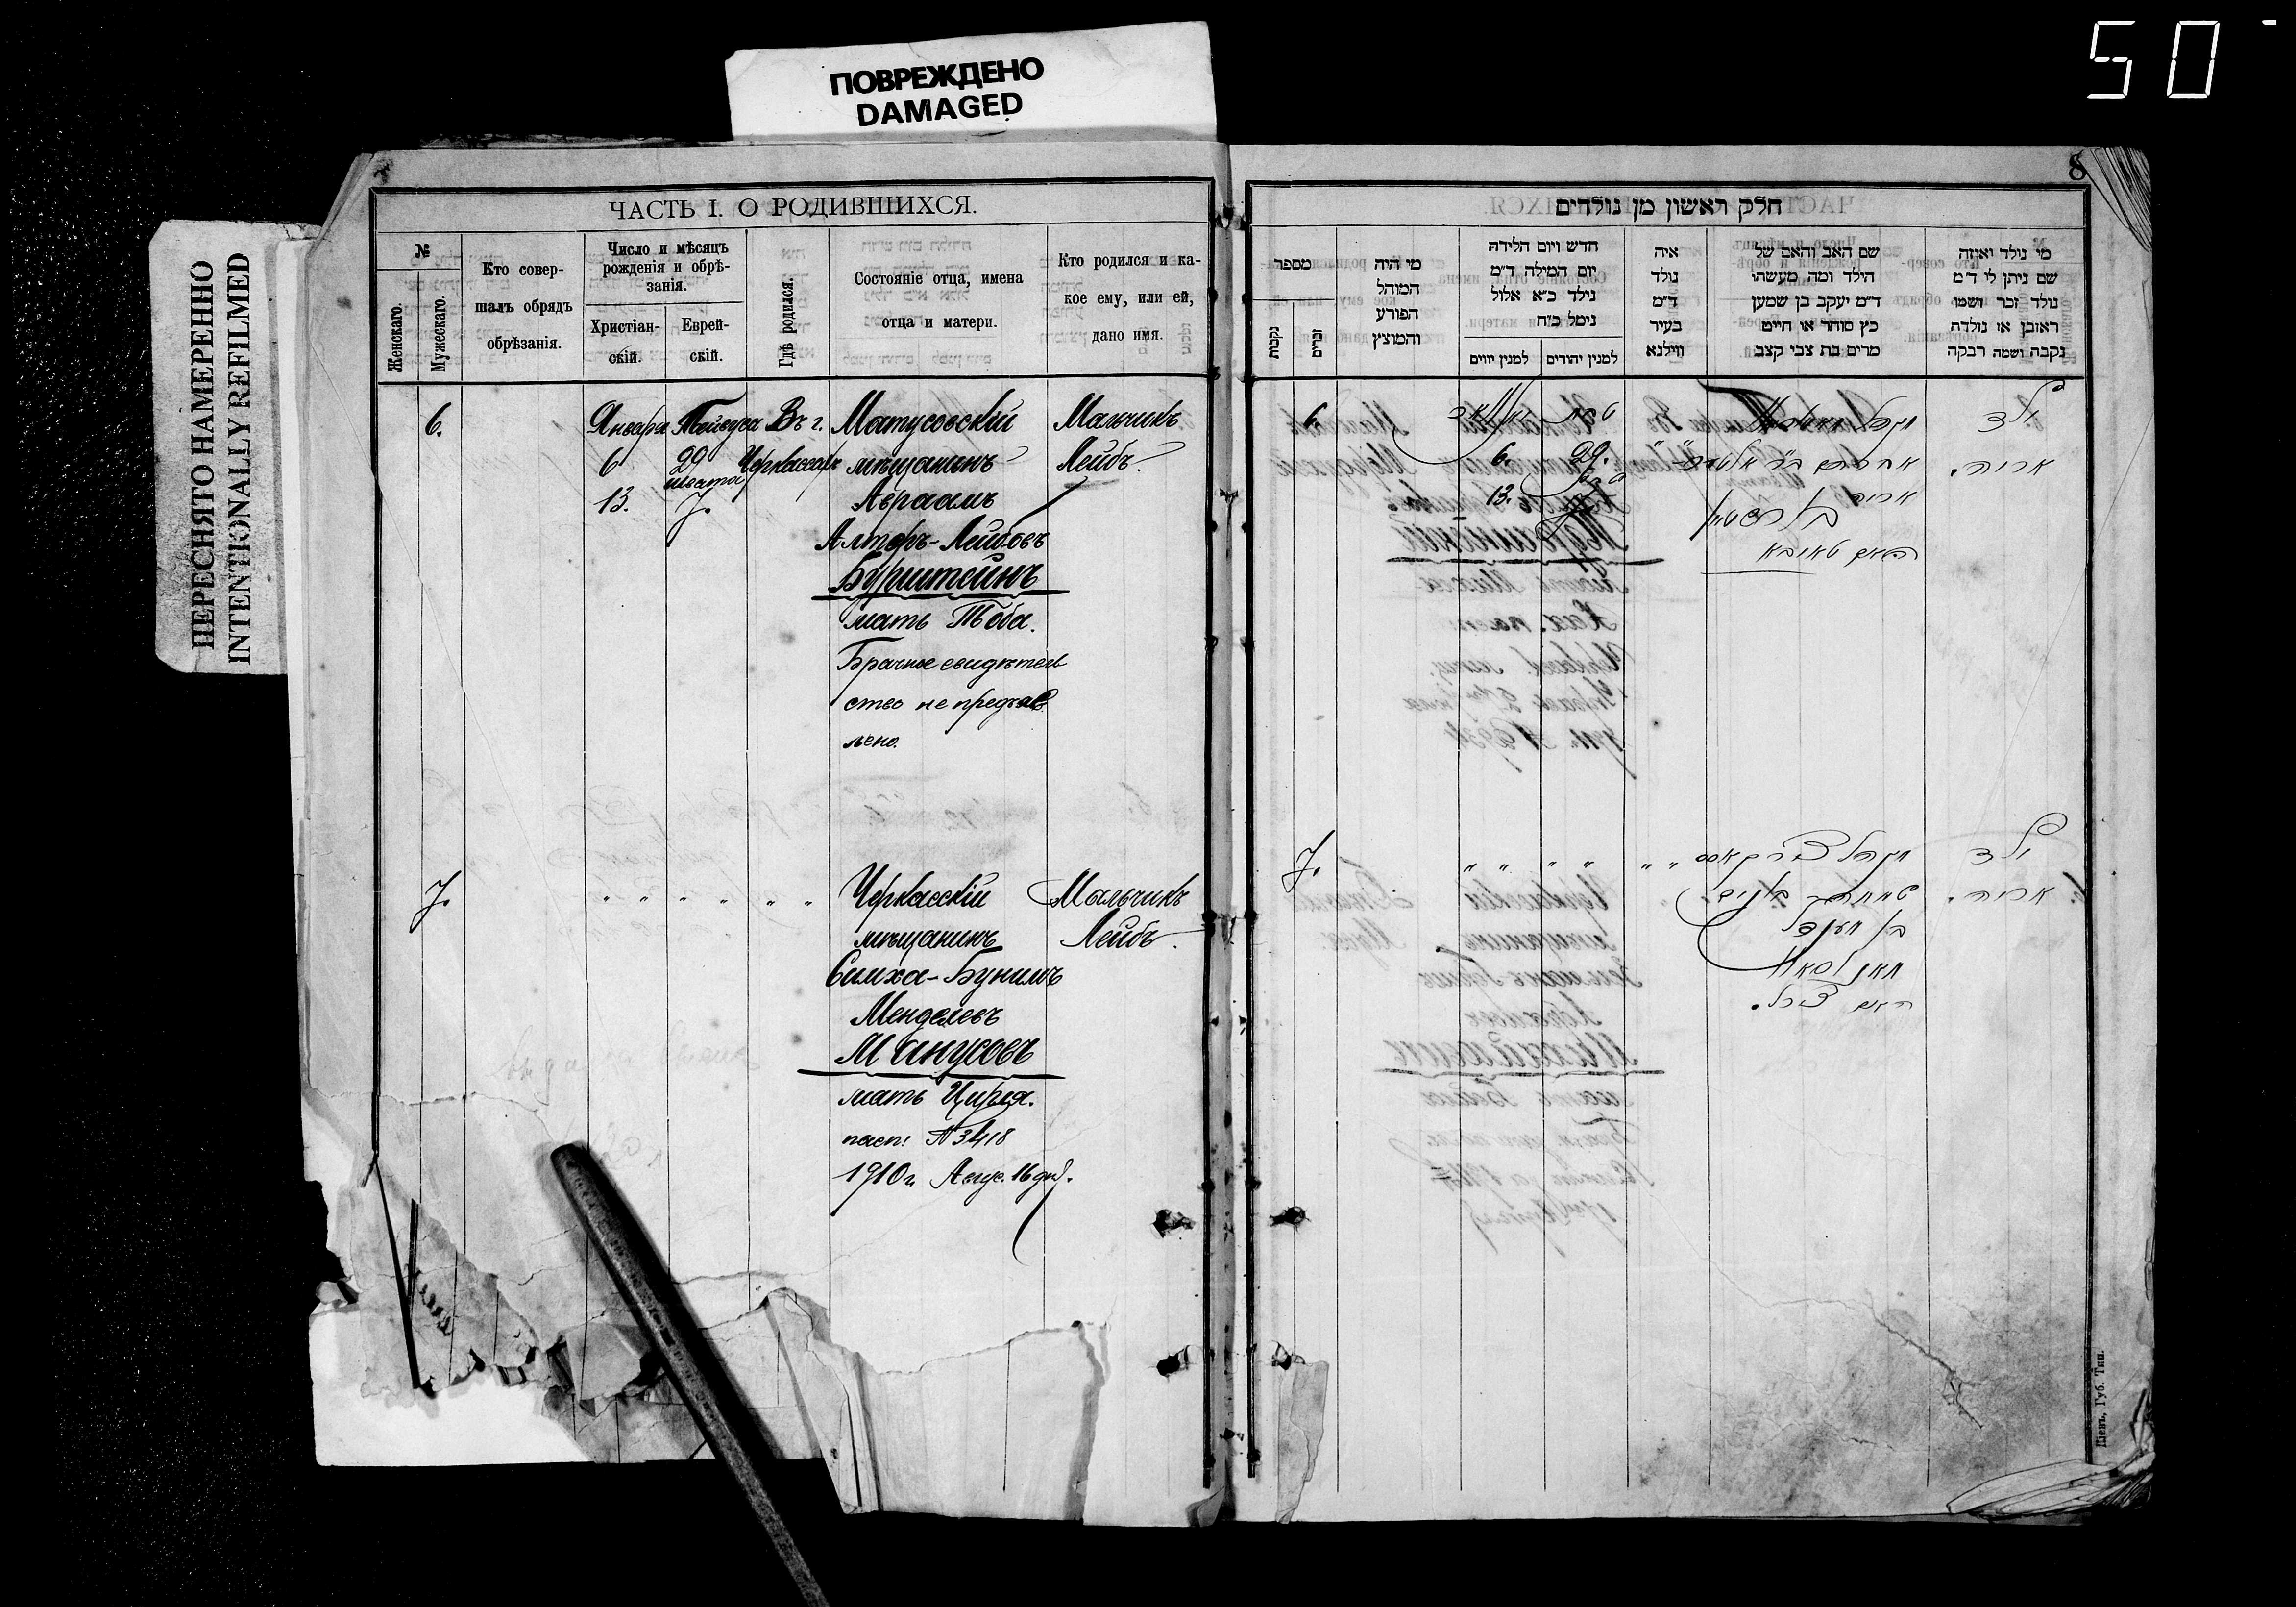 50
ПОВРЕЖДЕНО
DAMAGED
ПЕРЕСНЯТО НАМЕРЕННО
INTENTIONALLY REFILMED
ЧАСТЬ I. О РОДИВШИХСЯ.
№
Женскаго.
Мужескаго.
Кто совер-
шалъ обрядъ
обрѣзанія.
Число и мѣсяцъ
рожденія и обрѣ-
занія.
Христіан-
скій.
Еврей-
скій.
Гдѣ родился.
Состояніе отца, имена
отца и матери.
Кто родился и ка-
кое ему, или ей,
дано имя.
6.
Января
6
13.
Тейвуса
29
Швата
7.
Въ г.
Черкассахъ
Матусовскій
мѣщанинъ
Авраамъ
Алтеръ-Лейбовъ
Бурштейнъ
мать Тоба.
Брачное свидѣтель
ство не предъяв
лено.
Мальчикъ
Лейбъ.
7.
" " " " " "
Черкасскій
мѣщанинъ
Симха-Бунимъ
Менделевъ
Минусовъ
мать Цирля.
пасп. № 3418
1910 г. Авгус. 16 дня.
Мальчикъ
Лейбъ.
8
חלק ראשון מן נולדים
מי נולד ואיזה
שם ניתן לי ד״מ
נולד זכר ושמו
ראובן או נולדה
נקבה ושמה רבקה
שם האב והאם של
הילד ומה מעשהו
ד״מ יעקב בן שמעון
כץ סוחר או חייט
מרים בת צבי קצב
איה
נולד
ד״מ
בעיר
ווילנא
חדש ויום הלידה
יום המילה ד״מ
נילד כ״א אלול
נימל כ״ח
למנין יהודים
למנין יווים
מי היה
המוהל
הפורע
והמוצץ
מספר
זכרים
נקבות
ילד
אריה.
אברהם ב״ר אלטר
אריה
בורשטיין
האם טאובא
טבת
29.
6.
13.
6.
ילד
אריה.
שמחה בונים
בן מענדל
האם צירל.
" " " " " "
7.
Кіевъ, Губ. Тип.